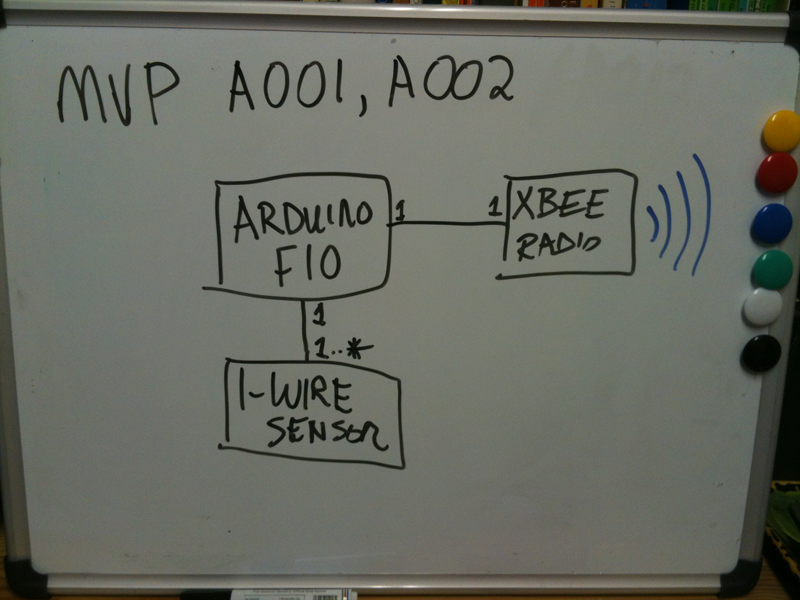 MVP A001, A002
ARDUINO
FIO
1
1
XBEE
RADIO
1
1..*
1-WIRE
SENSOR